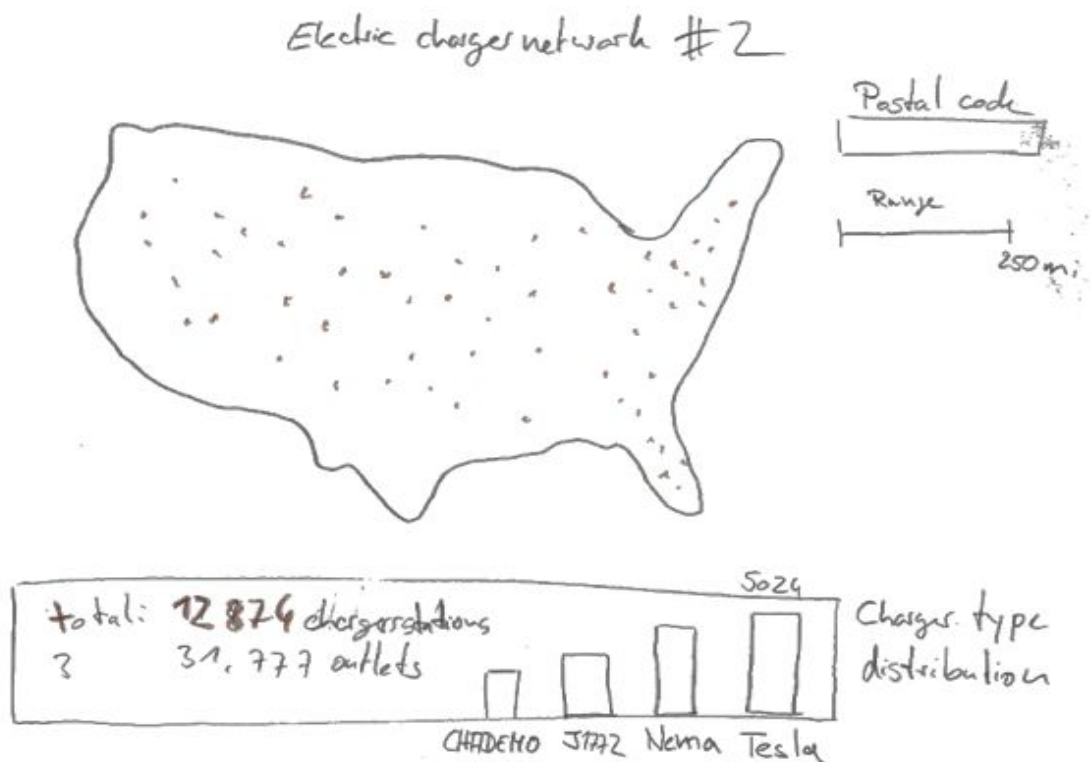 Electric charger network #2
Postal code
Range
250 mi
5024
total: 12 874 chargerstations
3 31.777 outlets
Charger type
distribution
CHADEMO J1772 Nema Tesla